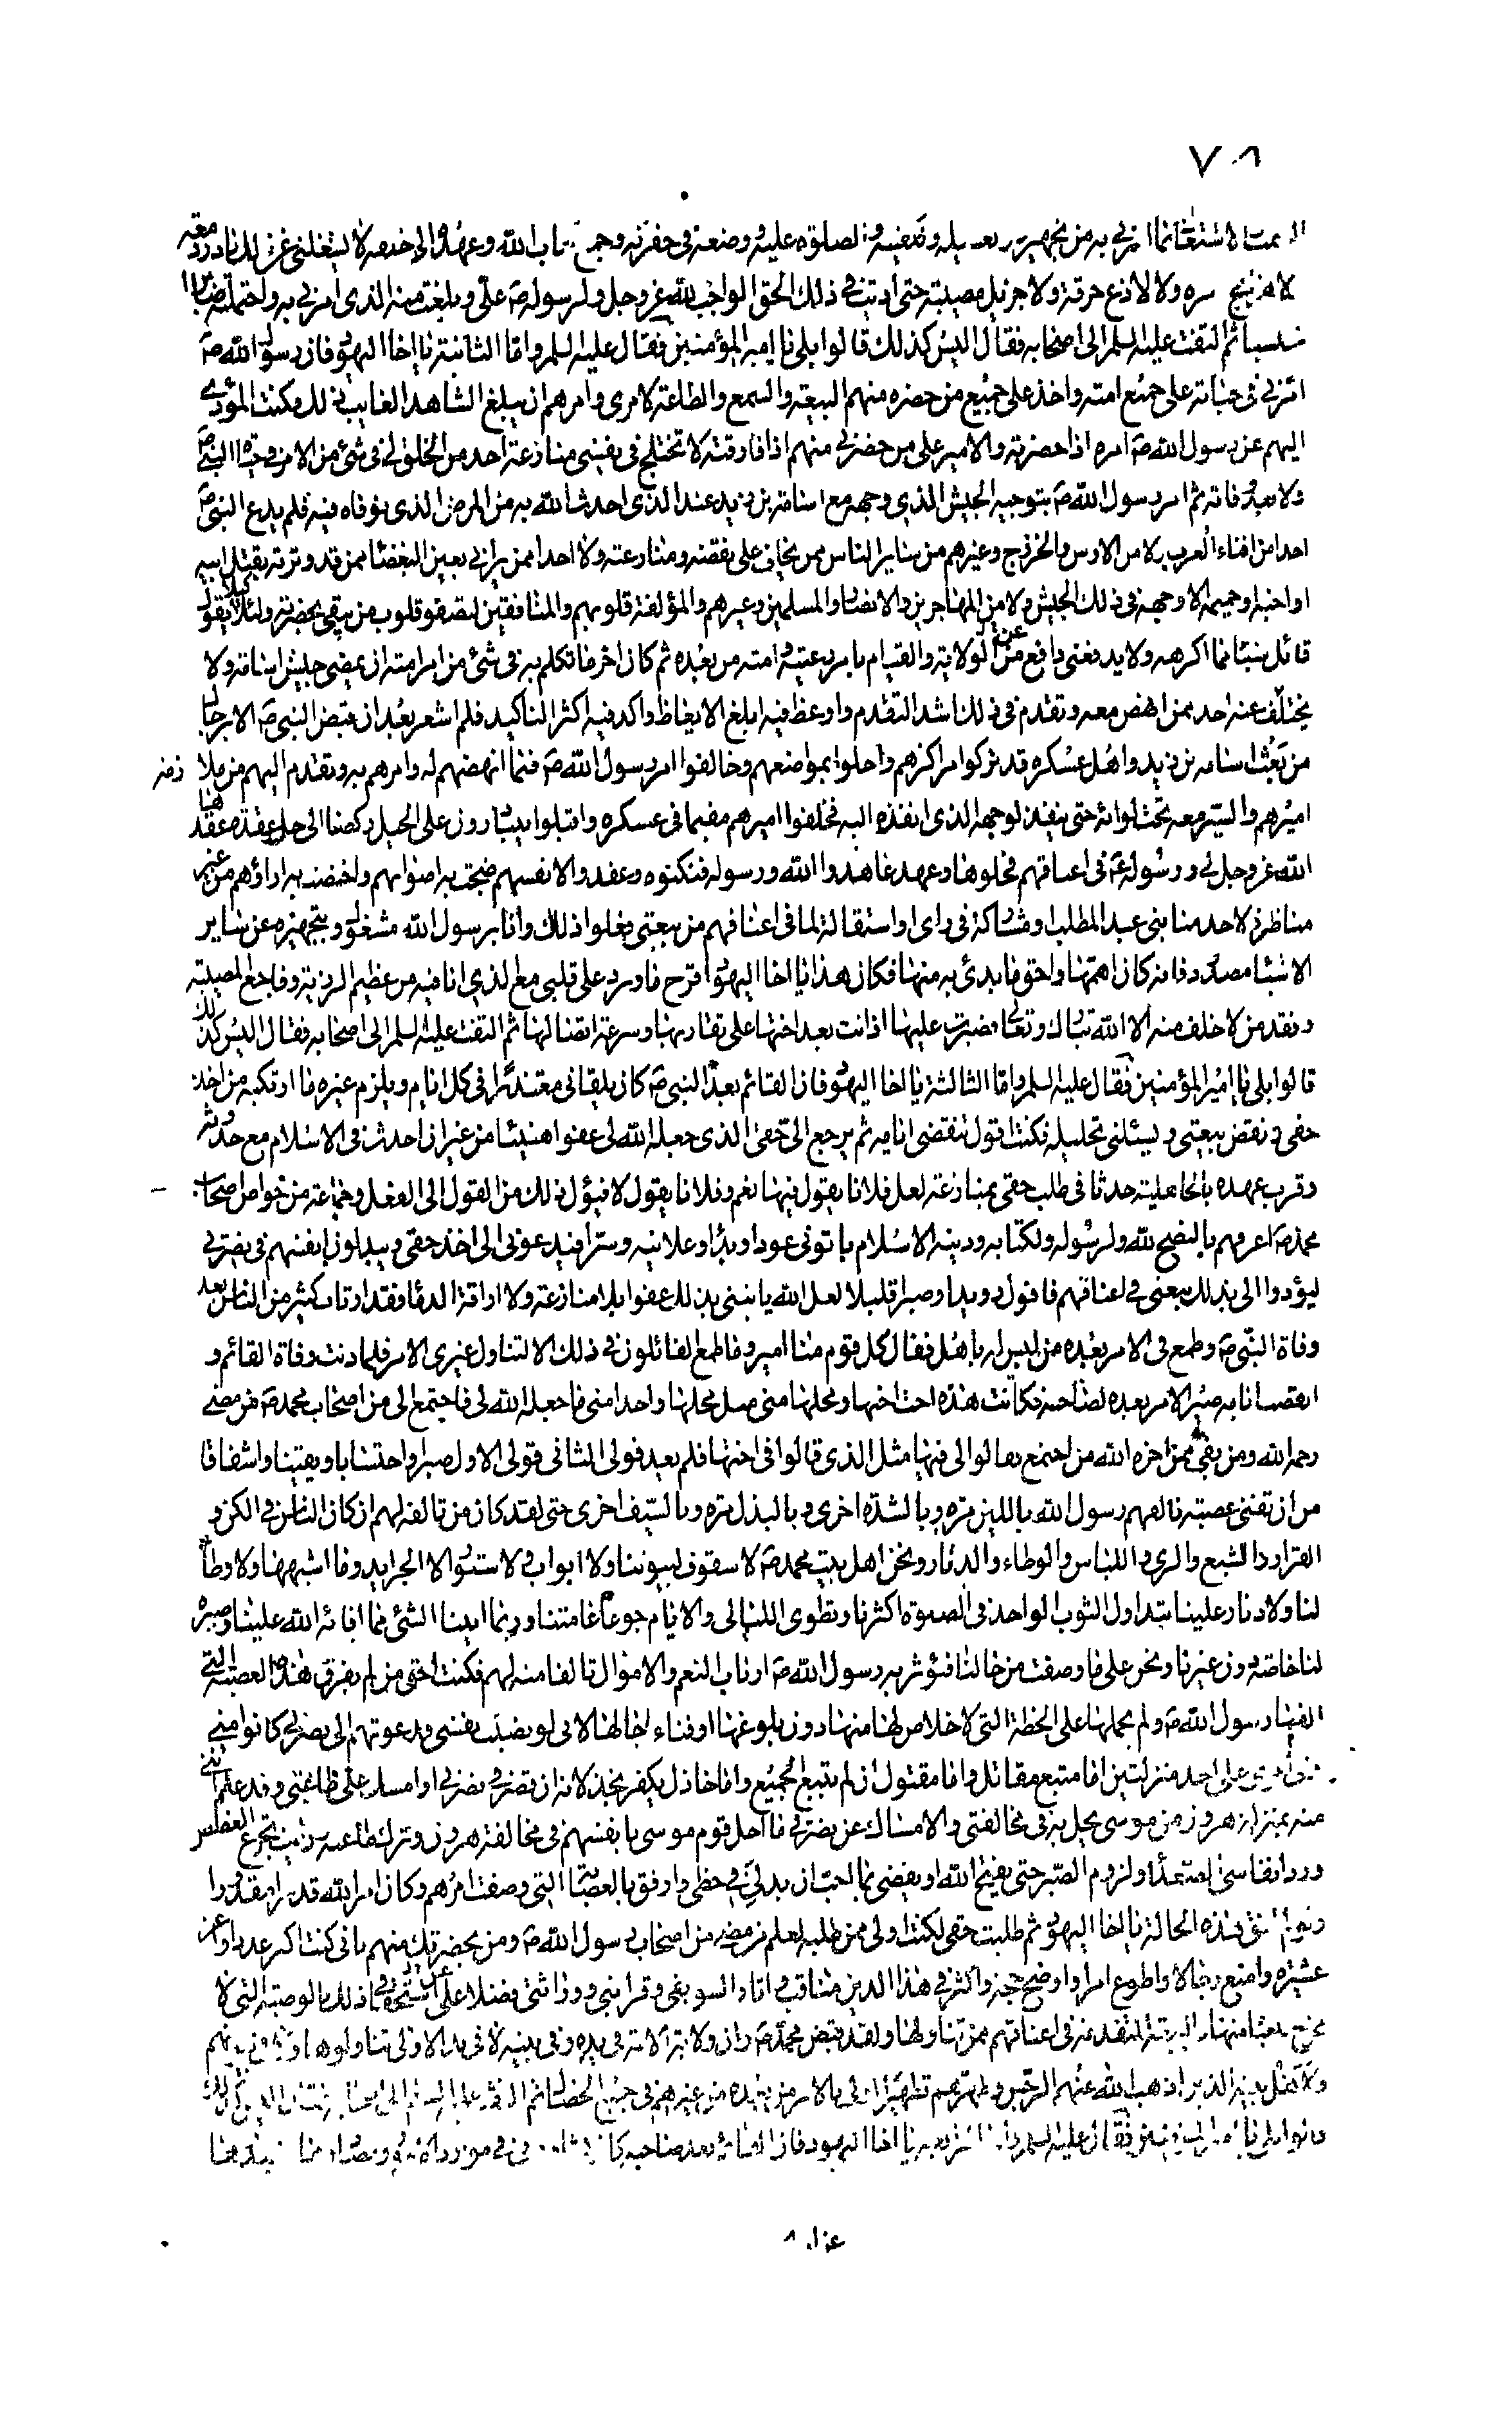 ٧٨
الصمت والاشتغال بما امرني به من تجهيزه وتغسيله وتحنيطه وتكفينه والصلوة عليه ووضعه في حفرته وجمع كتاب الله وعهده الى خلقه لا يشغلني عن ذلك بادر دمعة
ولا هايج زفره ولا لاذع حرقة ولا جزيل مصيبة حتى اديت في ذلك الحق الواجب لله عز وجل ولرسوله ص علي وبلغت منه الذي امرني به واحتملته صابرا
محتسبا ثم التفت عليه السلم الى اصحابه فقال اليس كذلك قالوا بلى يا امير المؤمنين فقال عليه السلم واما الثانية يا اخا اليهود فان رسول الله ص
امرني في حياته على جميع امته واخذ على جميع من حضره منهم البيعة والسمع والطاعة لامري وامرهم ان يبلغ الشاهد الغايب ذلك فكنت المؤدي
اليهم عن رسول الله ص امره اذا حضرته والامير على من حضرني منهم اذا فارقته لا تختلج في نفسي منازعة احد من الخلق لي في شئ من الامر في حيوة النبي ص
ولا بعد وفاته ثم امر رسول الله ص بتوجيه الجيش الذي وجهه مع اسامة بن زيد عند الذي احدث الله به من المرض الذي توفاه فيه فلم يدع النبي ص
احدا من افناء العرب ولا من الاوس والخزرج وغيرهم من ساير الناس ممن يخاف على نقضه ومنازعته ولا احدا ممن يراني بعين البغضاء ممن قد وترته بقتل ابيه
او اخيه او حميمه الا وجهه في ذلك الجيش ولا من المهاجرين والانصار والمسلمين وغيرهم والمؤلفة قلوبهم والمنافقين لتصفو قلوب من يبقى بحضرته ولئلا يقول
قائل شيئا مما اكرهه ولا يدفعني دافع عن الولاية والقيام بامر رعيته وامته من بعده ثم كان اخر ما تكلم به في شئ من امر امته ان يمضي جيش اسامة ولا
يتخلف عنه احد ممن انهض معه وتقدم في ذلك اشد التقدم واوعظ فيه ابلغ الايعاظ واكد فيه اكثر التاكيد فلم اشعر بعد ان قبض النبي ص الا برجال
من بعث اسامة بن زيد واهل عسكره قد تركوا مراكزهم واخلوا بمواضعهم وخالفوا امر رسول الله ص فيما انهضهم له وامرهم به وتقدم اليهم من ملازمة
اميرهم والسير معه تحت لوائه حتى ينفذ لوجهه الذي انفذه اليه فخلفوا اميرهم مقيما في عسكره واقبلوا يتبادرون على الخيل ركضا الى حل عقدة عقدها
الله عز وجل لي ورسوله ص في اعناقهم فحلوها وعهد عاهدوا الله ورسوله فنكثوه وعقدوا لانفسهم ضجت به اصواتهم واختصت به اراؤهم من غير
مناظرة لاحد منا بني عبد المطلب او مشاركة في راي او استقالة لما في اعناقهم من بيعتي فعلوا ذلك وانا برسول الله مشغول وبتجهيزه عن ساير
الاشياء مصدود فانه كان اهمها واحق ما بدئ به منها فكان هذا يا اخا اليهود اقرح ما ورد على قلبي مع الذي انا فيه من عظيم الرزية وفاجع المصيبة
وفقد من لا خلف منه الا الله تبارك وتعالى فصبرت عليها اذ اتت بعد اختها على تقاربها وسرعة اتصالها ثم التفت عليه السلم الى اصحابه فقال اليس كذلك
قالوا بلى يا امير المؤمنين فقال عليه السلم واما الثالثة يا اخا اليهود فان القائم بعد النبي ص كان يلقاني معتذرا في كل ايام ويلزم غيره ما ارتكبه من اخذ
حقي ونقض بيعتي ويسئلني تحليله فكنت اقول تنقضي ايامه ثم يرجع الى حقي الذي جعله الله لي عفوا هنيئا من غير ان احدث في الاسلام مع حدوثه
وقرب عهده بالجاهلية حدثا في طلب حقي بمنازعة لعل فلانا يقول فيها نعم وفلانا يقول لا فيؤل ذلك من القول الى الفعل وجماعة من خواص اصحاب
محمد ص اعرفهم بالنصح لله ولرسوله ولكتابه ودينه الاسلام ياتوني عودا وبدءا وعلانية وسرا فيدعوني الى اخذ حقي ويبذلون انفسهم في نصرتي
ليؤدوا الي بذلك بيعتي في اعناقهم فاقول رويدا وصبرا قليلا لعل الله ياتيني بذلك عفوا بلا منازعة ولا اراقة الدماء فقد ارتاب كثير من الناس بعد
وفاة النبي ص وطمع في الامر بعده من ليس له باهل فقال كل قوم منا امير وما طمع القائلون في ذلك الا لتناول غيري الامر فلما دنت وفاة القائم و
انقضت ايامه صير الامر بعده لصاحبه فكانت هذه اخت اختها ومحلها مني مثل محلها واخذا مني ما جعله الله لي فاجتمع الي من اصحاب محمد ص ممن مضى
رحمه الله ومن بقي ممن اخره الله من اجتمع فقالوا لي فيها مثل الذي قالوا في اختها فلم يعد قولي الثاني قولي الاول صبرا واحتسابا ويقينا واشفاقا
من ان تفنى عصبة تالفهم رسول الله باللين مرة وبالشدة اخرى وبالبذل مرة وبالسيف اخرى حتى لقد كان من تالفه لهم ان كان الناس في الكر و
الفرار والشبع والري واللباس والوطاء والدثار ونحن اهل بيت محمد ص لا سقوف لبيوتنا ولا ابواب ولا ستور الا الجرايد وما اشبهها ولا وطاء
لنا ولا دثار علينا يتداول الثوب الواحد في الصلوة اكثرنا ونطوي الليالي والايام جوعا عامتنا وربما اتينا الشئ مما افائه الله علينا وصيره
لنا خاصة دون غيرنا ونحن على ما وصفت من حالنا فيؤثر به رسول الله ص ارباب النعم والاموال تالفا منه لهم فكنت احق من لم يفرق هذه العصبة التي
الفها رسول الله ص ولم يحملها على الخطة التي لا خلاص لها منها دون بلوغها او فناء اجالها لاني لو نصبت نفسي فدعوتهم الى نصرتي كانوا مني
وفي امري على احد منزلتين اما متبع مقاتل واما مقتول ان لم يتبع الجميع واما خاذل يكفر بخذلانه ان قصر في نصرتي او امسك على طاعتي وقد علم اني
منه بمنزلة هرون من موسى يحل به في مخالفتي والامساك عن نصرتي ما احل قوم موسى بانفسهم في مخالفة هرون وترك طاعته ورايت تجرع الغصص
ورد انفاس الصعداء ولزوم الصبر حتى يفتح الله او يقضي بما احب ازيد لي في حظي وارفق بالعصابة التي وصفت امرهم وكان امر الله قدرا مقدورا
ولو لم اتق هذه الحالة يا اخا اليهود ثم طلبت حقي لكنت اولى ممن طلبه لعلم من مضى من اصحاب رسول الله ص ومن بحضرتك منهم باني كنت اكثر عددا واعز
عشيرة وامنع رجالا واطوع امرا واوضح حجة واكثر في هذا الدين مناقب واثارا لسوابقي وقرابتي ووراثتي فضلا عن استحقاقي ذلك بالوصية التي لا
مخرج للعباد منها والبيعة المتقدمة في اعناقهم ممن تناولها ولقد قبض محمد ص وان ولاية الامة في يده وفي بيته لا في يد الاولى تناولوها ولا في بيوتهم
ولاهل بيته الذين اذهب الله عنهم الرجس وطهرهم تطهيرا اولى بالامر من بعده من غيرهم في جميع الخصال ثم التفت عليه السلم الى اصحابه فقال اليس كذلك
قالوا بلى يا امير المؤمنين فقال عليه السلم واما الرابعة يا اخا اليهود فان القائم بعد صاحبه كان يشاورني في موارد الامور